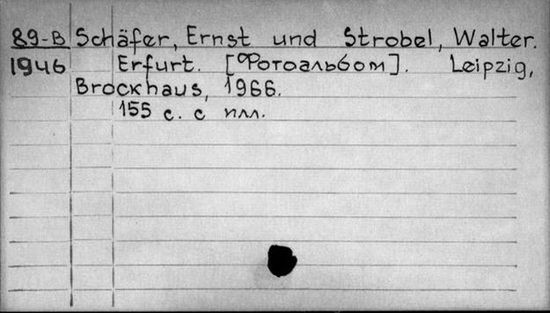 89-В Schäfer, Ernst und Strobel, Walter.
1946 Erfurt. [Фотоальбом]. Leipzig,
Brockhaus, 1966.
155 с. с илл.